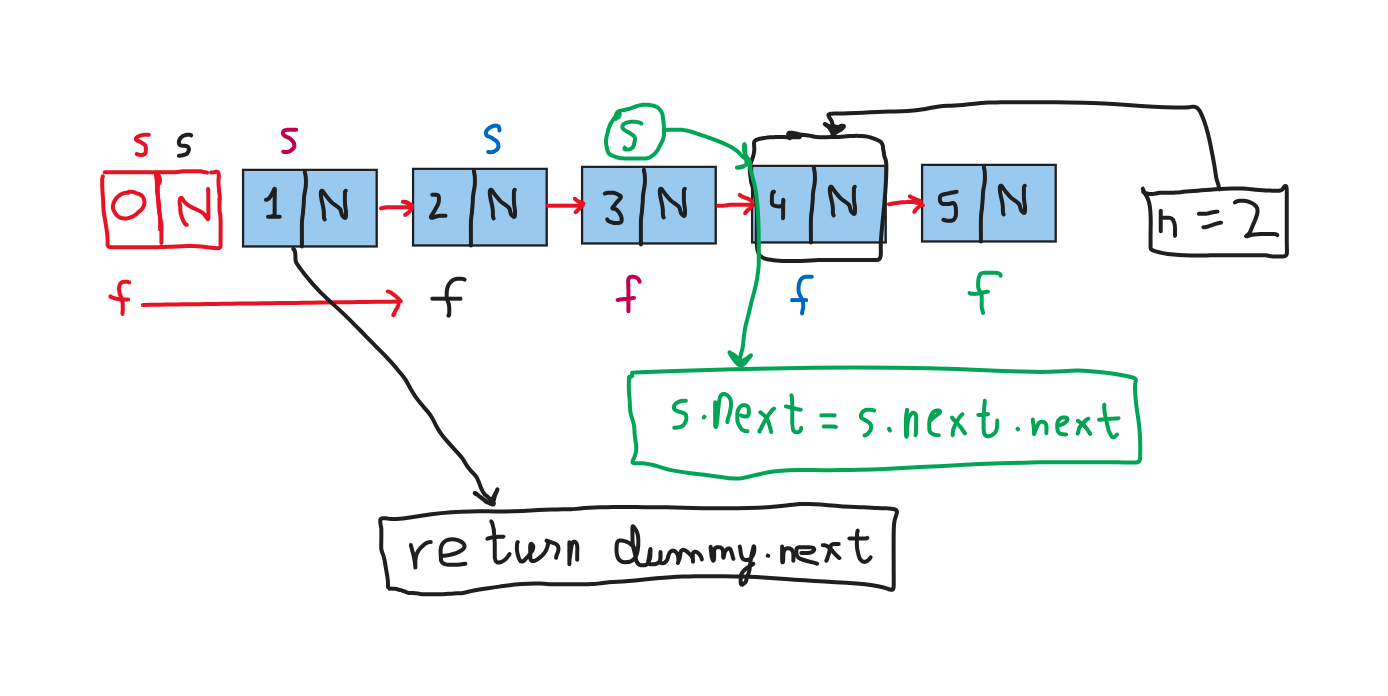 s s s s s
0 N 1 N 2 N 3 N 4 N 5 N
n = 2
f f f f f
s.next = s.next.next
return dummy.next